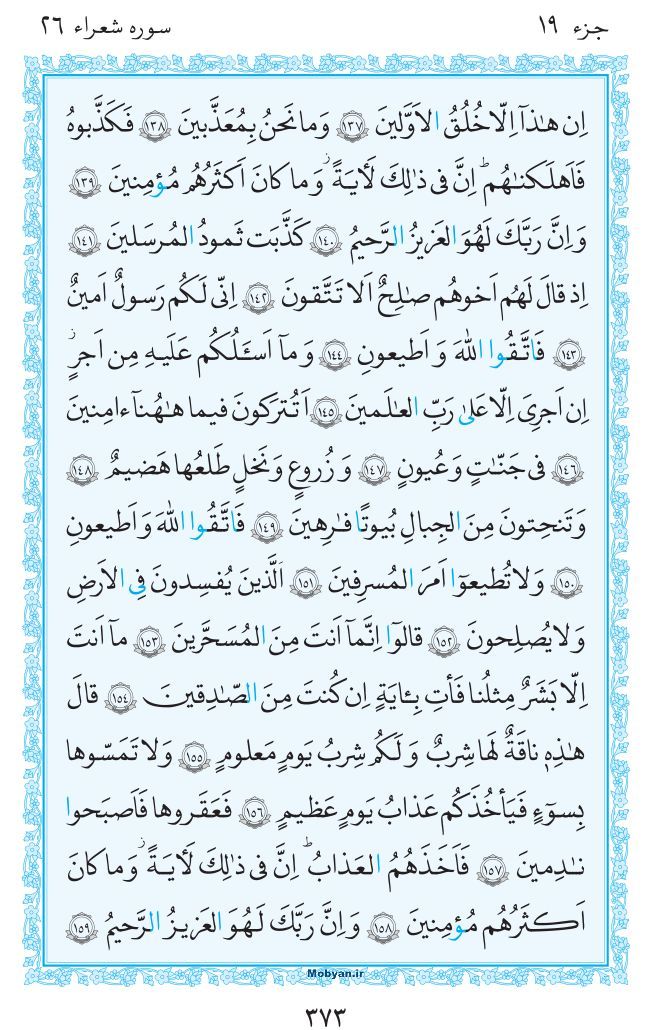 جزء ۱۹
سوره شعراء ۲۶
اِن هٰذآ اِلّا خُلُقُ الاَوَّلينَ ﴿١٣٧﴾ وَما نَحنُ بِمُعَذَّبينَ ﴿١٣٨﴾ فَكَذَّبوهُ
فَاَهلَكنٰهُم ۗ اِنَّ فى ذٰلِكَ لَأيَةً ۖ وَما كانَ اَكثَرُهُم مُؤمِنينَ ﴿١٣٩﴾
وَاِنَّ رَبَّكَ لَهُوَ العَزيزُ الرَّحيمُ ﴿١٤٠﴾ كَذَّبَت ثَمودُ المُرسَلينَ ﴿١٤١﴾
اِذ قالَ لَهُم اَخوهُم صٰلِحٌ اَلا تَتَّقونَ ﴿١٤٢﴾ اِنّى لَكُم رَسولٌ اَمينٌ
﴿١٤٣﴾ فَاتَّقُوا اللهَ وَ اَطيعونِ ﴿١٤٤﴾ وَ مآ اَسـَٔلُكُم عَلَيهِ مِن اَجرٍ ۖ
اِن اَجرِىَ اِلّا عَلىٰ رَبِّ العٰلَمينَ ﴿١٤٥﴾ اَتُترَكونَ فيما هٰهُنآ ءامِنينَ
﴿١٤٦﴾ فى جَنّٰتٍ وَ عُيونٍ ﴿١٤٧﴾ وَ زُروعٍ وَ نَخلٍ طَلعُها هَضيمٌ ﴿١٤٨﴾
وَ تَنحِتونَ مِنَ الجِبالِ بُيوتًا فٰرِهينَ ﴿١٤٩﴾ فَاتَّقُوا اللهَ وَ اَطيعونِ
﴿١٥٠﴾ وَلا تُطيعوٓا اَمرَ المُسرِفينَ ﴿١٥١﴾ اَلَّذينَ يُفسِدونَ فِى الاَرضِ
وَلا يُصلِحونَ ﴿١٥٢﴾ قالوٓا اِنَّمآ اَنتَ مِنَ المُسَحَّرينَ ﴿١٥٣﴾ مآ اَنتَ
اِلّا بَشَرٌ مِثلُنا فَأتِ بِـٔايَةٍ اِن كُنتَ مِنَ الصّٰدِقينَ ﴿١٥٤﴾ قالَ
هٰذِهٖ ناقَةٌ لَها شِربٌ وَ لَكُم شِربُ يَومٍ مَعلومٍ ﴿١٥٥﴾ وَلا تَمَسّوها
بِسوٓءٍ فَيَأخُذَكُم عَذابُ يَومٍ عَظيمٍ ﴿١٥٦﴾ فَعَقَروها فَاَصبَحوا
نٰدِمينَ ﴿١٥٧﴾ فَاَخَذَهُمُ العَذابُ ۗ اِنَّ فى ذٰلِكَ لَأيَةً ۖ وَما كانَ
اَكثَرُهُم مُؤمِنينَ ﴿١٥٨﴾ وَ اِنَّ رَبَّكَ لَهُوَ العَزيزُ الرَّحيمُ ﴿١٥٩﴾
Mobyan.ir
۳۷۳